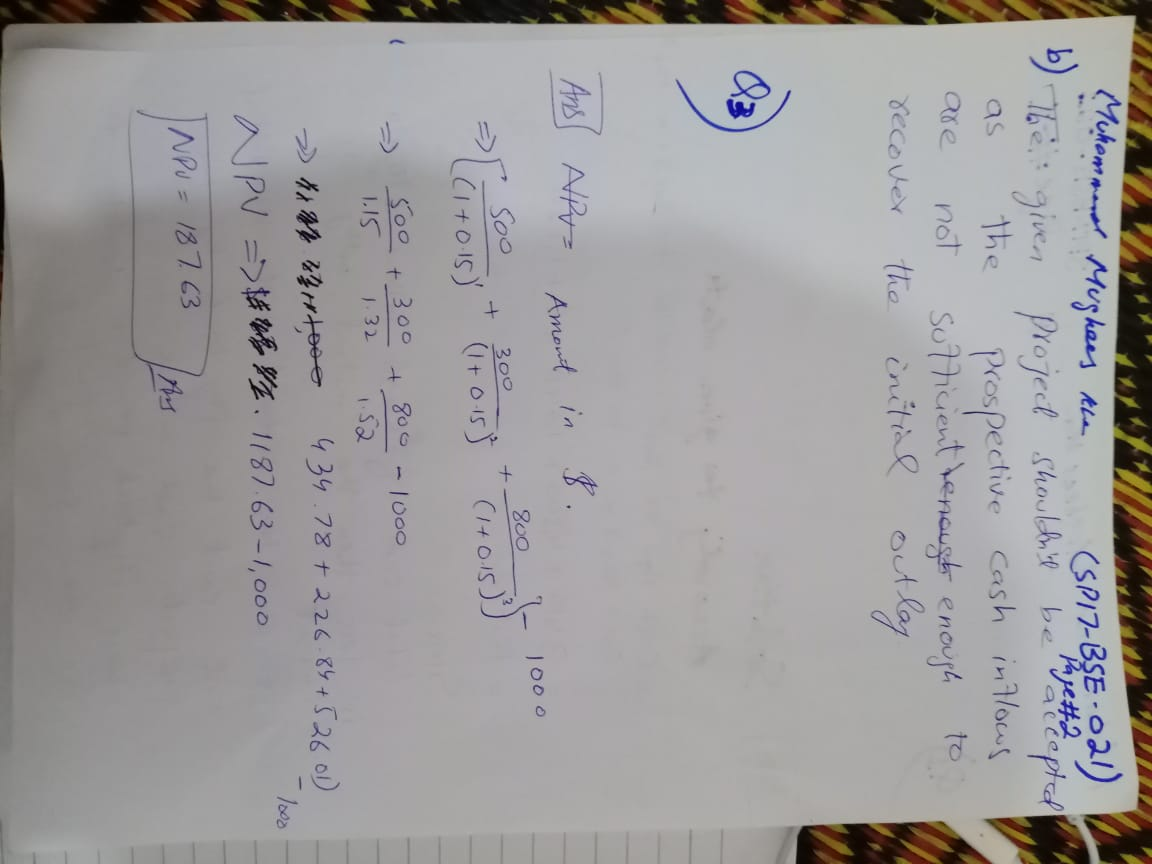 Muhammad Mughees Khan (SP17-BSE-021)
Page#2
b) The given project shouldn't be accepted
as the prospective cash inflows
are not sufficient enough enough to
recover the initial outlay
Q3
Ans NPV = Amount in $.
=> [500/(1+0.15)¹ + 300/(1+0.15)² + 800/(1+0.15)³] - 1000
=> 500/1.15 + 300/1.32 + 800/1.52 - 1000
=> 434.78 + 226.84 + 526.01) - 1000
NPV => 1187.63 - 1,000
NPV = 187.63 Ans